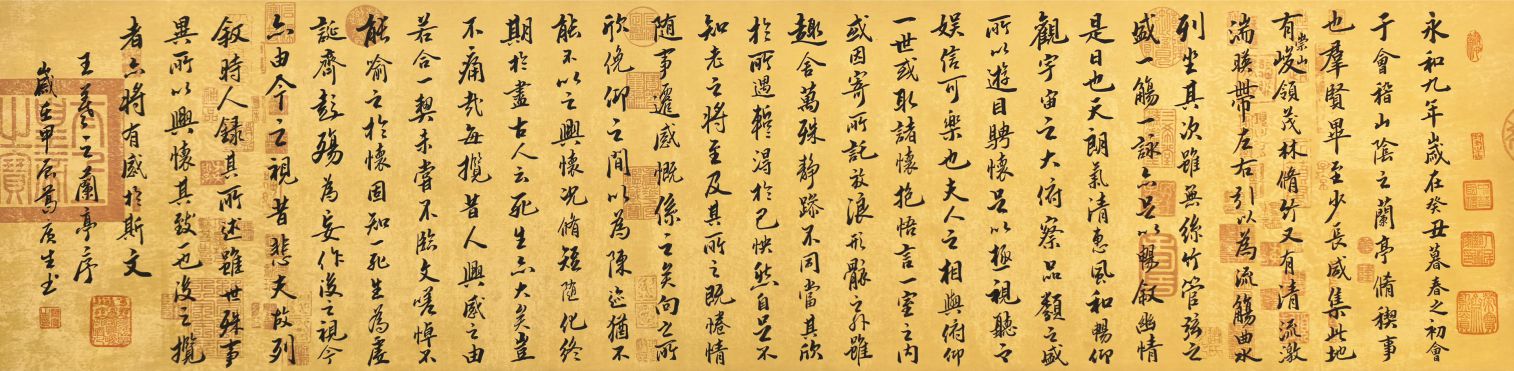 永和九年歲在癸丑暮春之初會
于會稽山陰之蘭亭脩禊事
也羣賢畢至少長咸集此地
有崇山峻領茂林脩竹又有清流激
湍暎帶左右引以為流觴曲水
列坐其次雖無絲竹管弦之
盛一觴一詠亦足以暢敘幽情
是日也天朗氣清惠風和暢仰
觀宇宙之大俯察品類之盛
所以遊目騁懷足以極視聽之
娛信可樂也夫人之相與俯仰
一世或取諸懷抱悟言一室之內
或因寄所託放浪形骸之外雖
趣舍萬殊靜躁不同當其欣
於所遇暫得於己怏然自足不
知老之將至及其所之既惓情
隨事遷感慨係之矣向之所
欣俛仰之間以為陳迹猶不
能不以之興懷況脩短隨化終
期於盡古人云死生亦大矣豈
不痛哉每攬昔人興感之由
若合一契未嘗不臨文嗟悼不
能喻之於懷固知一死生為虛
誕齊彭殤為妄作後之視今
亦由今之視昔悲夫故列
敘時人錄其所述雖世殊事
異所以興懷其致一也後之攬
者亦將有感於斯文
王羲之蘭亭序
歲在甲辰